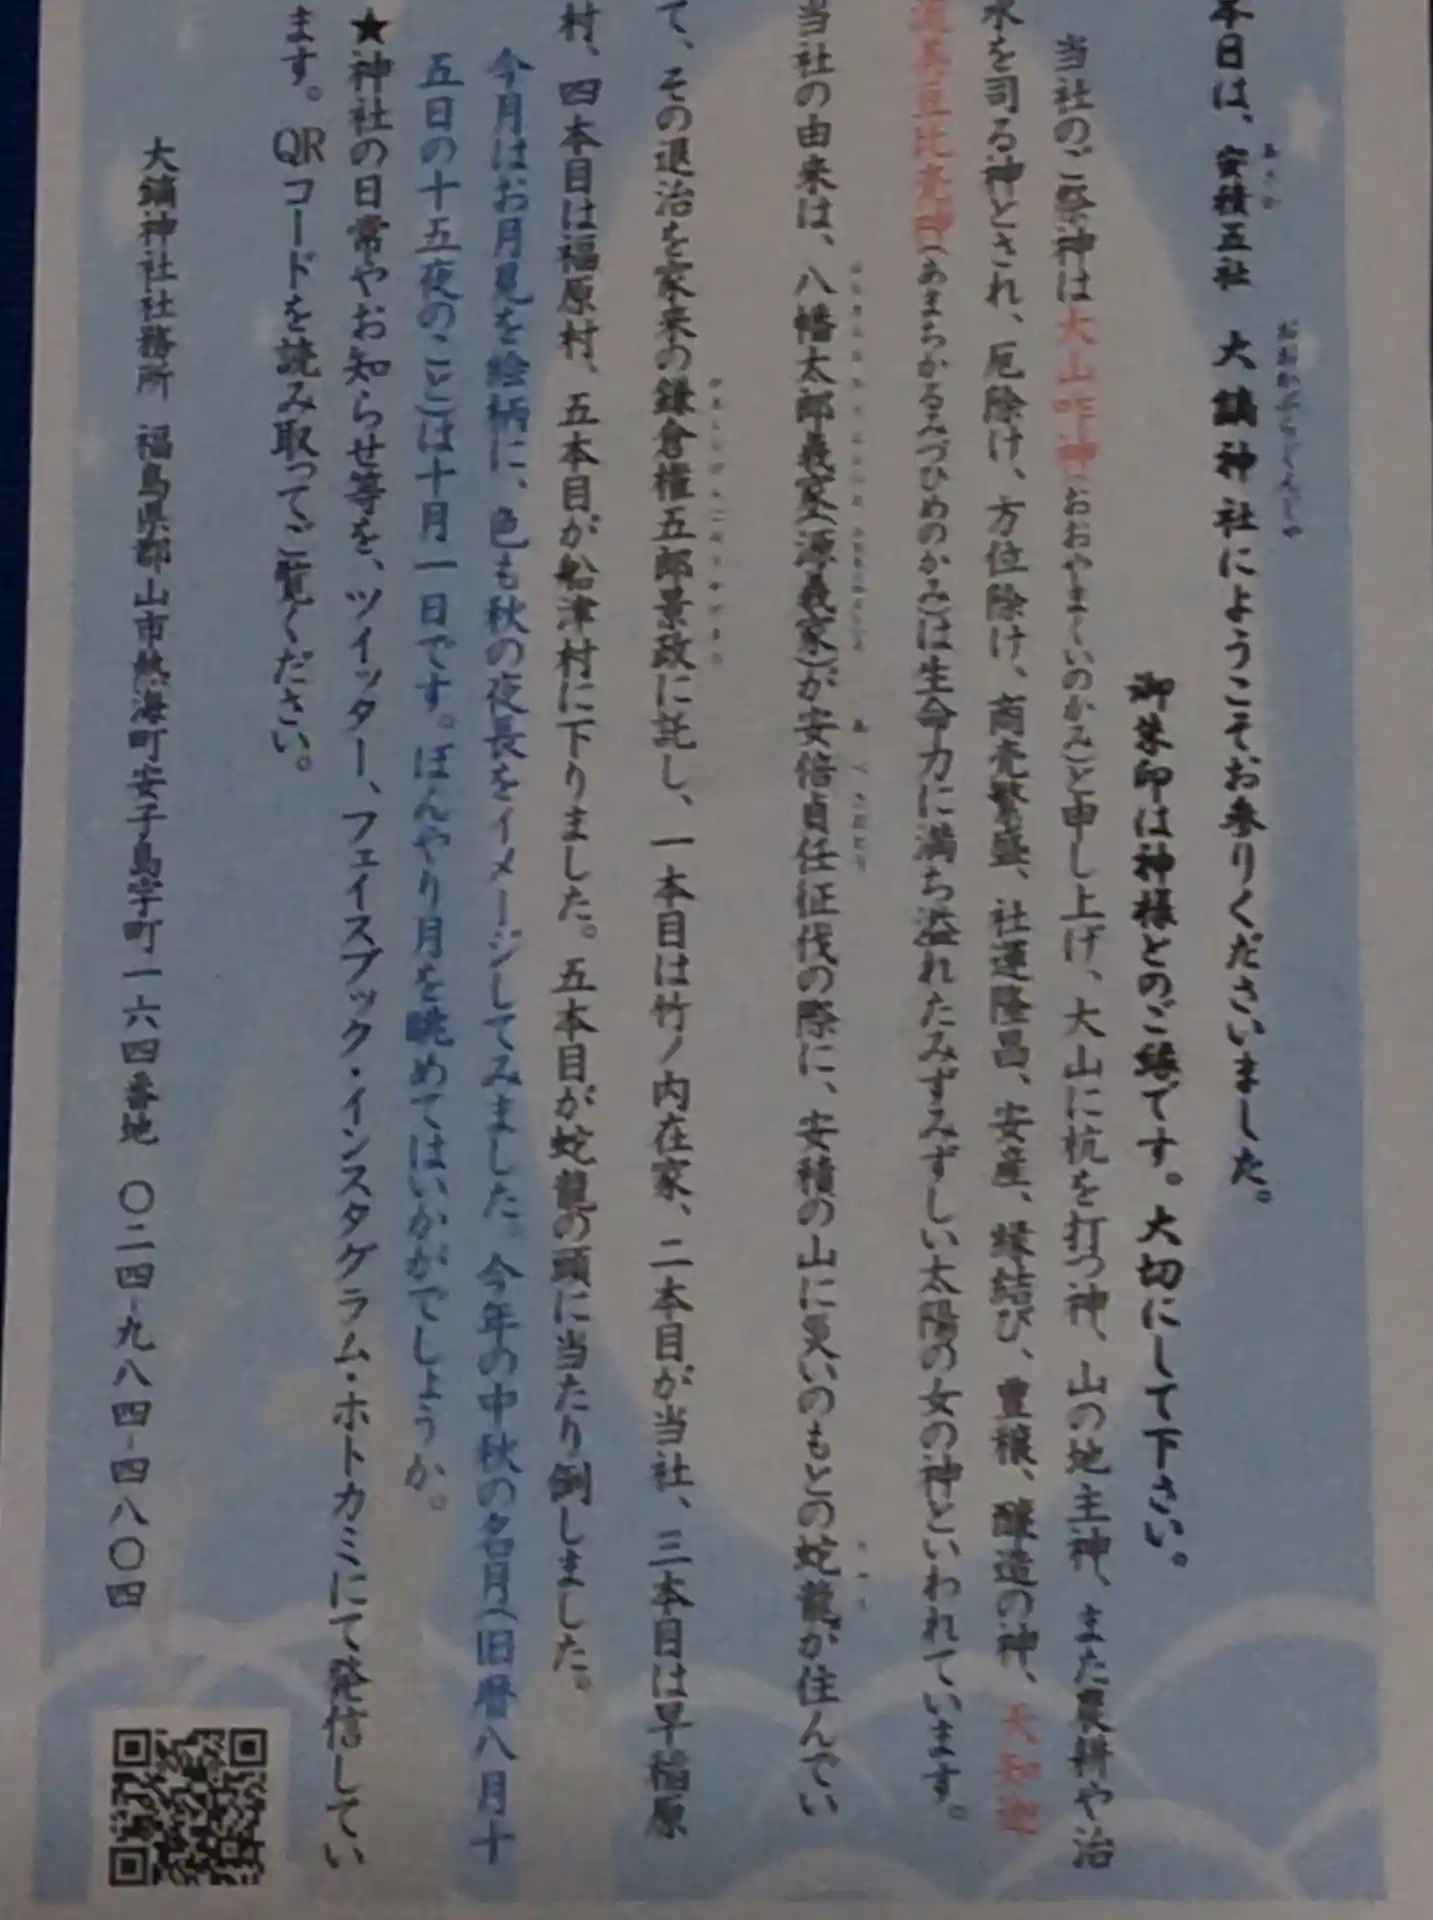 本日は、安積五社 大鏑神社にようこそお参りくださいました。
あさか
おおかぶらじんじゃ
御朱印は神様とのご縁です。大切にして下さい。
当社のご祭神は大山咋神(おおやまくいのかみ)と申し上げ、大山に杭を打つ神、山の地主神、また農耕や治
水を司る神とされ、厄除け、方位除け、商売繁盛、社運隆昌、安産、縁結び、豊穣、醸造の神、天知迦
流美豆比売神(あまちかるみづひめのかみ)は生命力に満ち溢れたみずみずしい太陽の女の神といわれています。
当社の由来は、八幡太郎義家(源義家)が安倍貞任征伐の際に、安積の山に災いのもとの蛇龍が住んでい
て、その退治を家来の鎌倉権五郎景政に託し、一本目は竹ノ内在家、二本目が当社、三本目は早稲原
村、四本目は福原村、五本目が船津村に下りました。五本目が蛇龍の頭に当たり倒しました。
今月はお月見を絵柄に、色も秋の夜長をイメージしてみました。今年の中秋の名月(旧暦八月十
五日の十五夜のこと)は十月一日です。ぼんやり月を眺めてはいかがでしょうか。
★神社の日常やお知らせ等を、ツイッター、フェイスブック・インスタグラム・ホトカミにて発信してい
ます。QRコードを読み取ってご覧ください。
大鏑神社社務所 福島県郡山市熱海町安子島字町一六四番地 〇二四-九八四-四八〇四